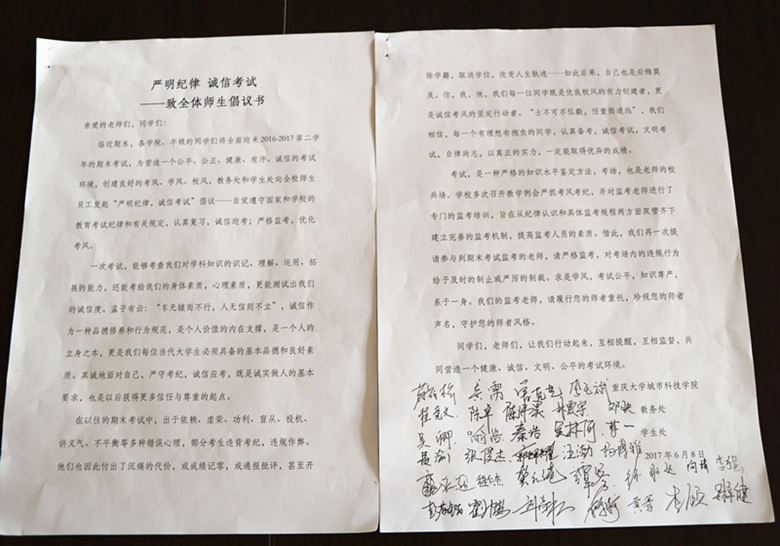 严明纪律 诚信考试
——致全体师生倡议书
亲爱的老师们，同学们：
临近期末，各学院、年级的同学们将全面迎来 2016-2017 第二学
年的期末考试，为营造一个公平、公正、健康、有序、诚信的考试
环境，创建良好的考风、学风、校风，教务处和学生处向全校师生
员工发起“严明纪律，诚信考试”倡议——自觉遵守国家和学校的
教育考试纪律和有关规定，认真复习，诚信迎考；严格监考，优化
考风。
一次考试，能够考查我们对学科知识的识记、理解、运用、拓
展的能力，还能考验我们的身体素质，心理素质，更能测试出我们
的诚信度。孟子有云：“车无辕而不行，人无信则不立”，诚信作
为一种品德修养和行为规范，是个人价值的内在支撑，是一个人的
立身之本，更是我们每位当代大学生必须具备的基本品德和良好素
质。真诚地面对自己，严守考纪，诚信应考，既是诚实做人的基本
要求，也是以后获得更多信任与尊重的起点。
在以往的期末考试中，出于依赖、虚荣、功利、盲从、投机、
讲义气、不平衡等多种错误心理，部分考生违背考纪，违规作弊。
他们也因此付出了沉痛的代价，或成绩记零，或通报批评，甚至开
除学籍，取消学位，改变人生轨迹……如此后果，自己也是后悔莫
及。你，我，他，我们每一位同学既是优良校风的有力创建者，更
是诚信考风的坚定行动者。“士不可不弘毅，任重而道远”，我们
相信，每一个有理想有抱负的同学，认真备考，诚信考试，文明考
试，自律尚志，以真正的实力，一定能取得优异的成绩。
考试，是一种严格的知识水平鉴定方法，考场，也是老师的校
兵场。学校多次召开教学例会严抓考风考纪，并对监考老师进行了
专门的监考培训，旨在从纪律认识和具体监考规程两方面双管齐下
建立完善的监考机制，提高监考人员的素质。借此，我们再一次提
请参与到期末考试监考的老师，请严格监考，对考场内的违规行为
给予及时的制止或严厉的制裁。求是学风，考试公平，知识尊严，
系于一身。我们的监考老师，请履行您的师者重托，珍视您的师者
声名，守护您的师者风格。
同学们，老师们，让我们行动起来，互相提醒，互相监督，共
同营造一个健康、诚信、文明、公平的考试环境。
重庆大学城市科技学院
教务处
学生处
2017 年 6 月 8 日